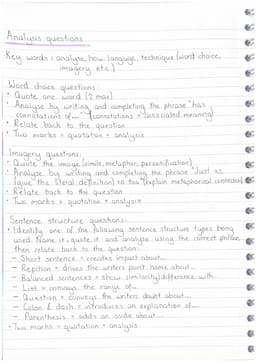 Analysis questions
Key words : analyse, how, language, technique (word choice,
imagery etc.)
Word choice questions:
• Quote one word (2 max)
• Analyse by writing and completing the phrase "has
connotations of..." (connotations = associated meaning)
• Relate back to the question
• Two marks = quotation + analysis
Imagery questions:
• Quote the image (simile, metaphor, personification)
• Analyse by writing and completing the phrase Just as
(give the literal definition) so too (explain metaphorical connection)
• Relate back to the question
• Two marks = quotation + analysis
Sentence structure questions:
• Identify one of the following sentence structure types being
used. Name it, quote it and analyse using the correct phrase,
then relate back to the question:
– Short sentence = creates impact about...
– Repition = drives the writers point home about...
– Balanced sentences = show similarity/difference with...
– List = conveys the range of...
– Question = conveys the writers doubt about...
– Colon & dash = introduces an explanation of...
– Parenthesis = adds an aside about...
• Two marks = quotation + analysis